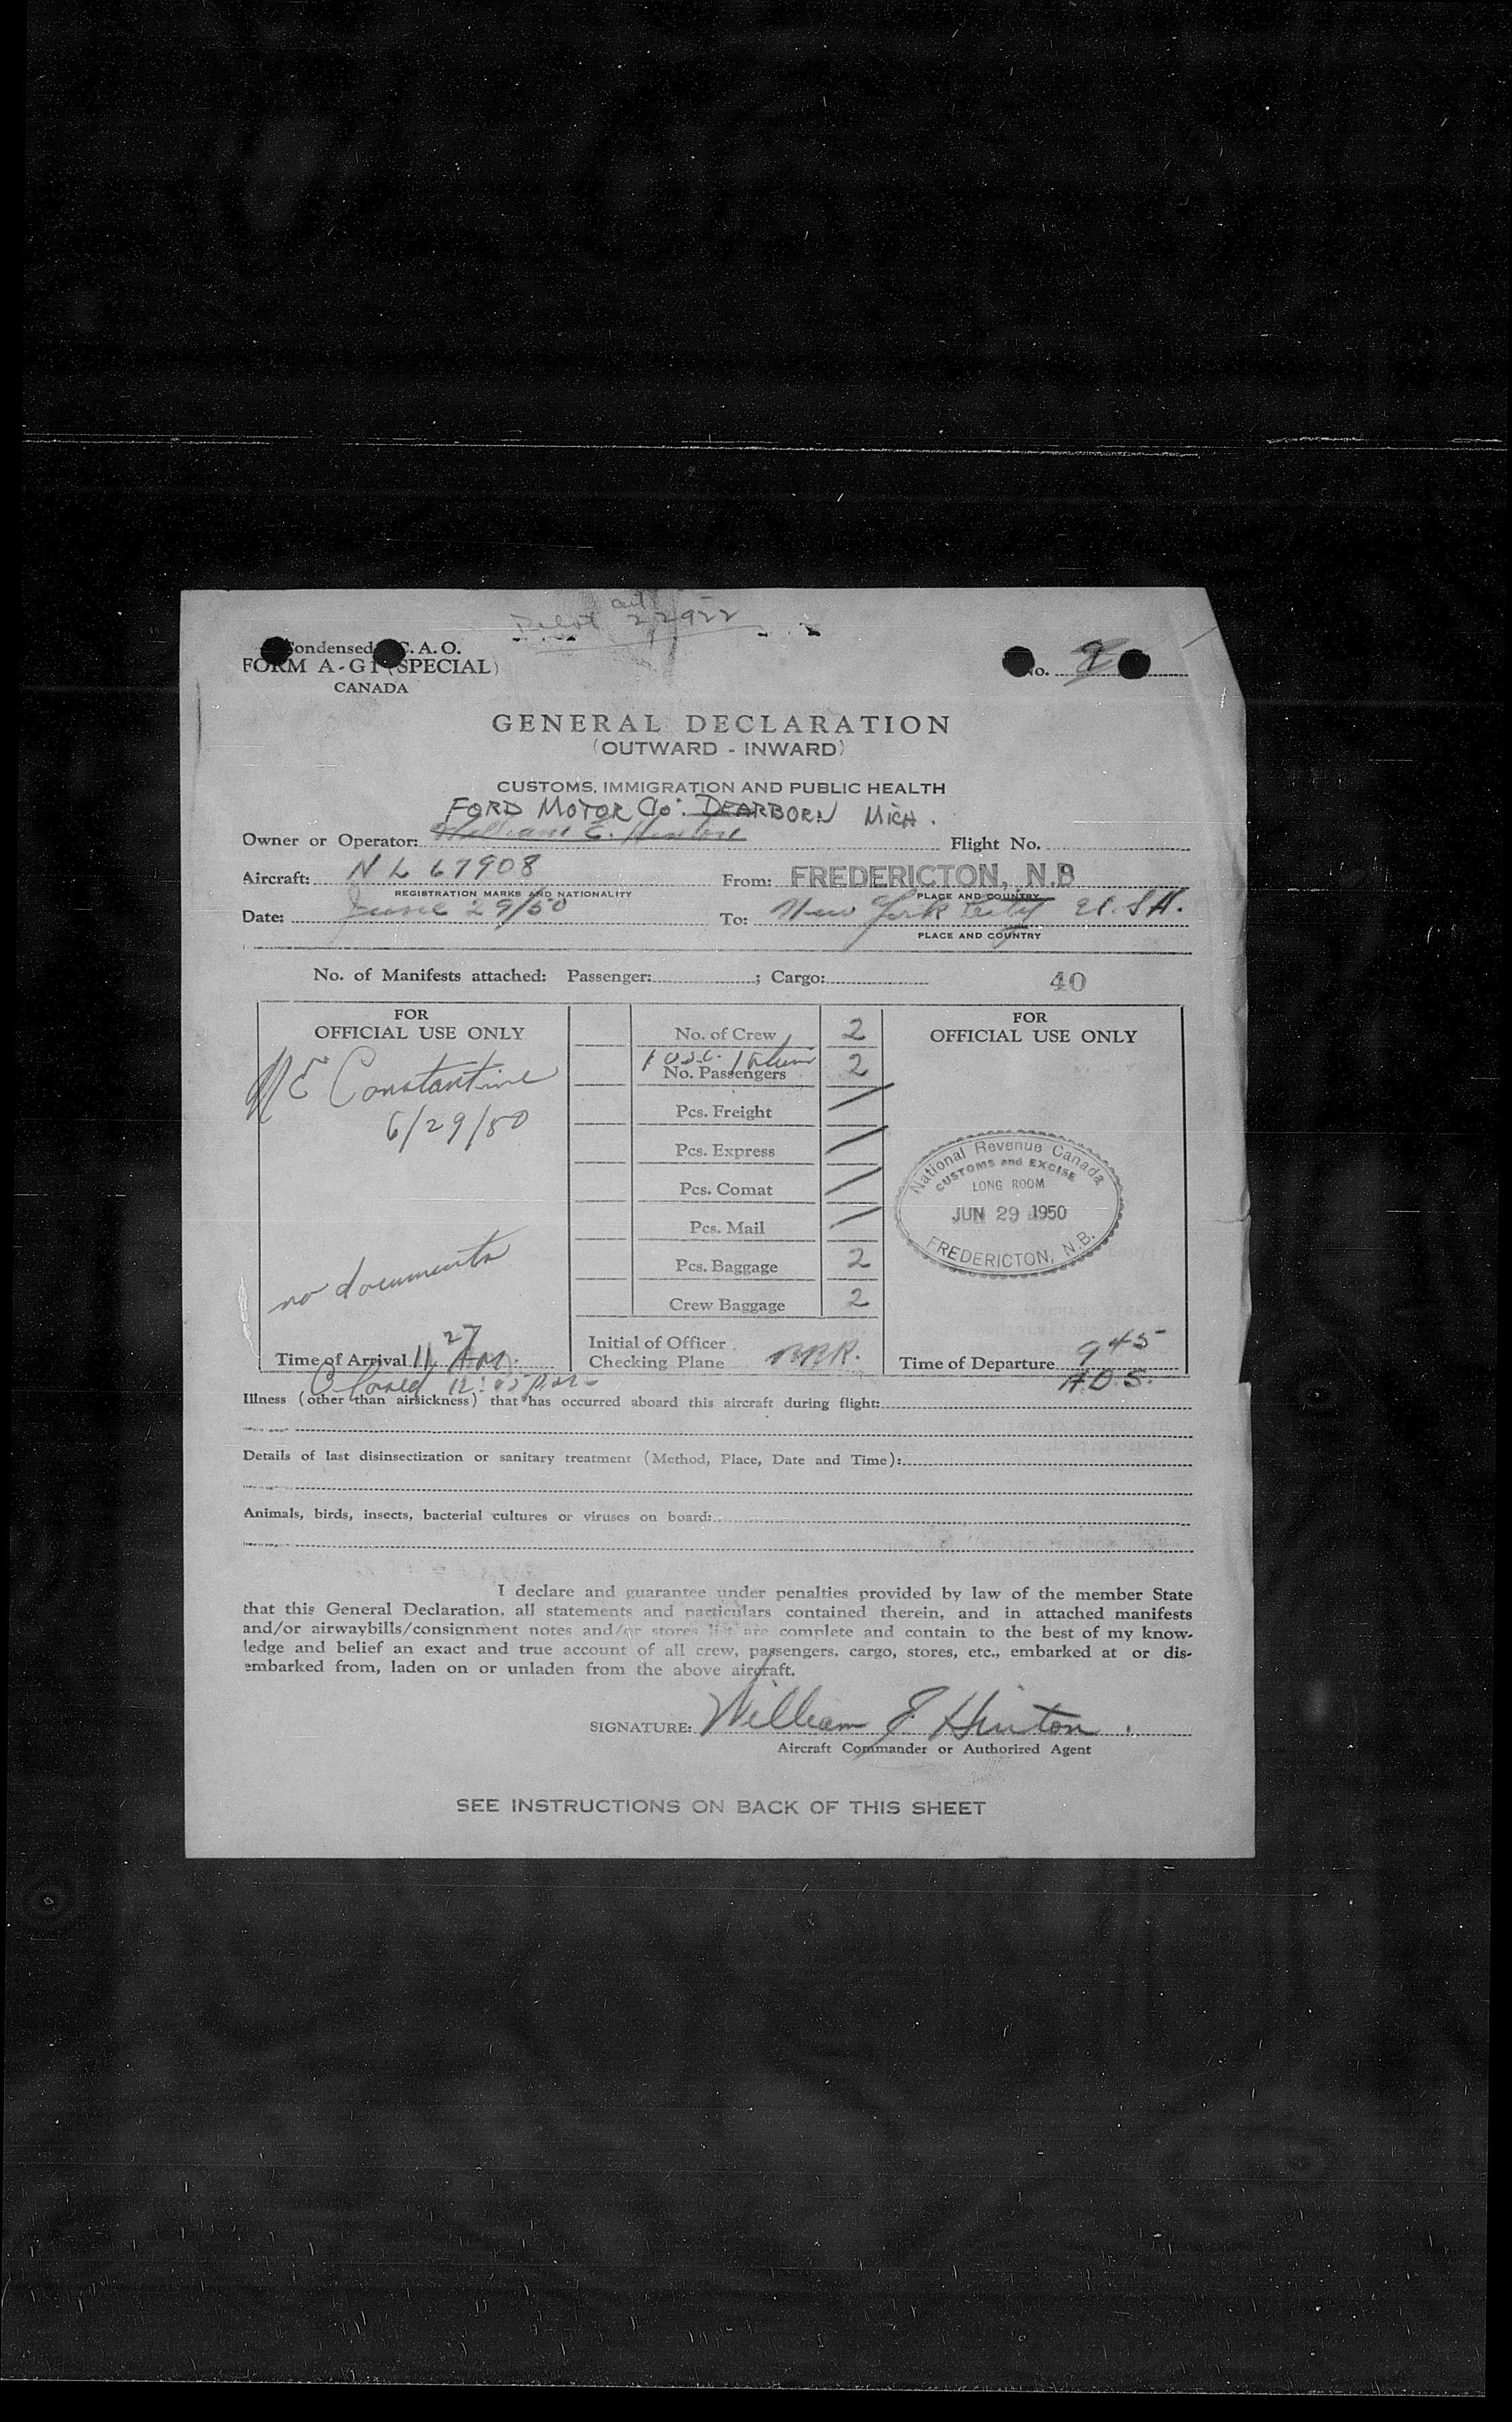 Pilot 22922
Condensed C.A.O.
FORM A-G1 (SPECIAL)
CANADA
No. 2
GENERAL DECLARATION
(OUTWARD - INWARD)
CUSTOMS, IMMIGRATION AND PUBLIC HEALTH
FORD MOTOR CO. DEARBORN MICH.
Owner or Operator: William E. Hinton Flight No.
Aircraft: NL 67908 From: FREDERICTON, N.B
REGISTRATION MARKS AND NATIONALITY PLACE AND COUNTRY
Date: June 29/50 To: New York City U.S.A.
PLACE AND COUNTRY
No. of Manifests attached: Passenger: ; Cargo: 40
FOR
OFFICIAL USE ONLY
NE Constantine
6/29/50
no documents
Time of Arrival 11 27 AM.
Closed 12:05 p.m.
No. of Crew 2
1 U.S.C. 1
No. Passengers 2
Pcs. Freight /
Pcs. Express /
Pcs. Comat /
Pcs. Mail /
Pcs. Baggage 2
Crew Baggage 2
Initial of Officer
Checking Plane
FOR
OFFICIAL USE ONLY
National Revenue Canada
CUSTOMS and EXCISE
LONG ROOM
JUN 29 1950
FREDERICTON, N.B.
Time of Departure 9 45
A.D.S.
Illness (other than airsickness) that has occurred aboard this aircraft during flight:
Details of last disinsectization or sanitary treatment (Method, Place, Date and Time):
Animals, birds, insects, bacterial cultures or viruses on board:
I declare and guarantee under penalties provided by law of the member State
that this General Declaration, all statements and particulars contained therein, and in attached manifests
and/or airwaybills/consignment notes and/or stores list are complete and contain to the best of my know-
ledge and belief an exact and true account of all crew, passengers, cargo, stores, etc., embarked at or dis-
embarked from, laden on or unladen from the above aircraft.
SIGNATURE: William E Hinton.
Aircraft Commander or Authorized Agent
SEE INSTRUCTIONS ON BACK OF THIS SHEET